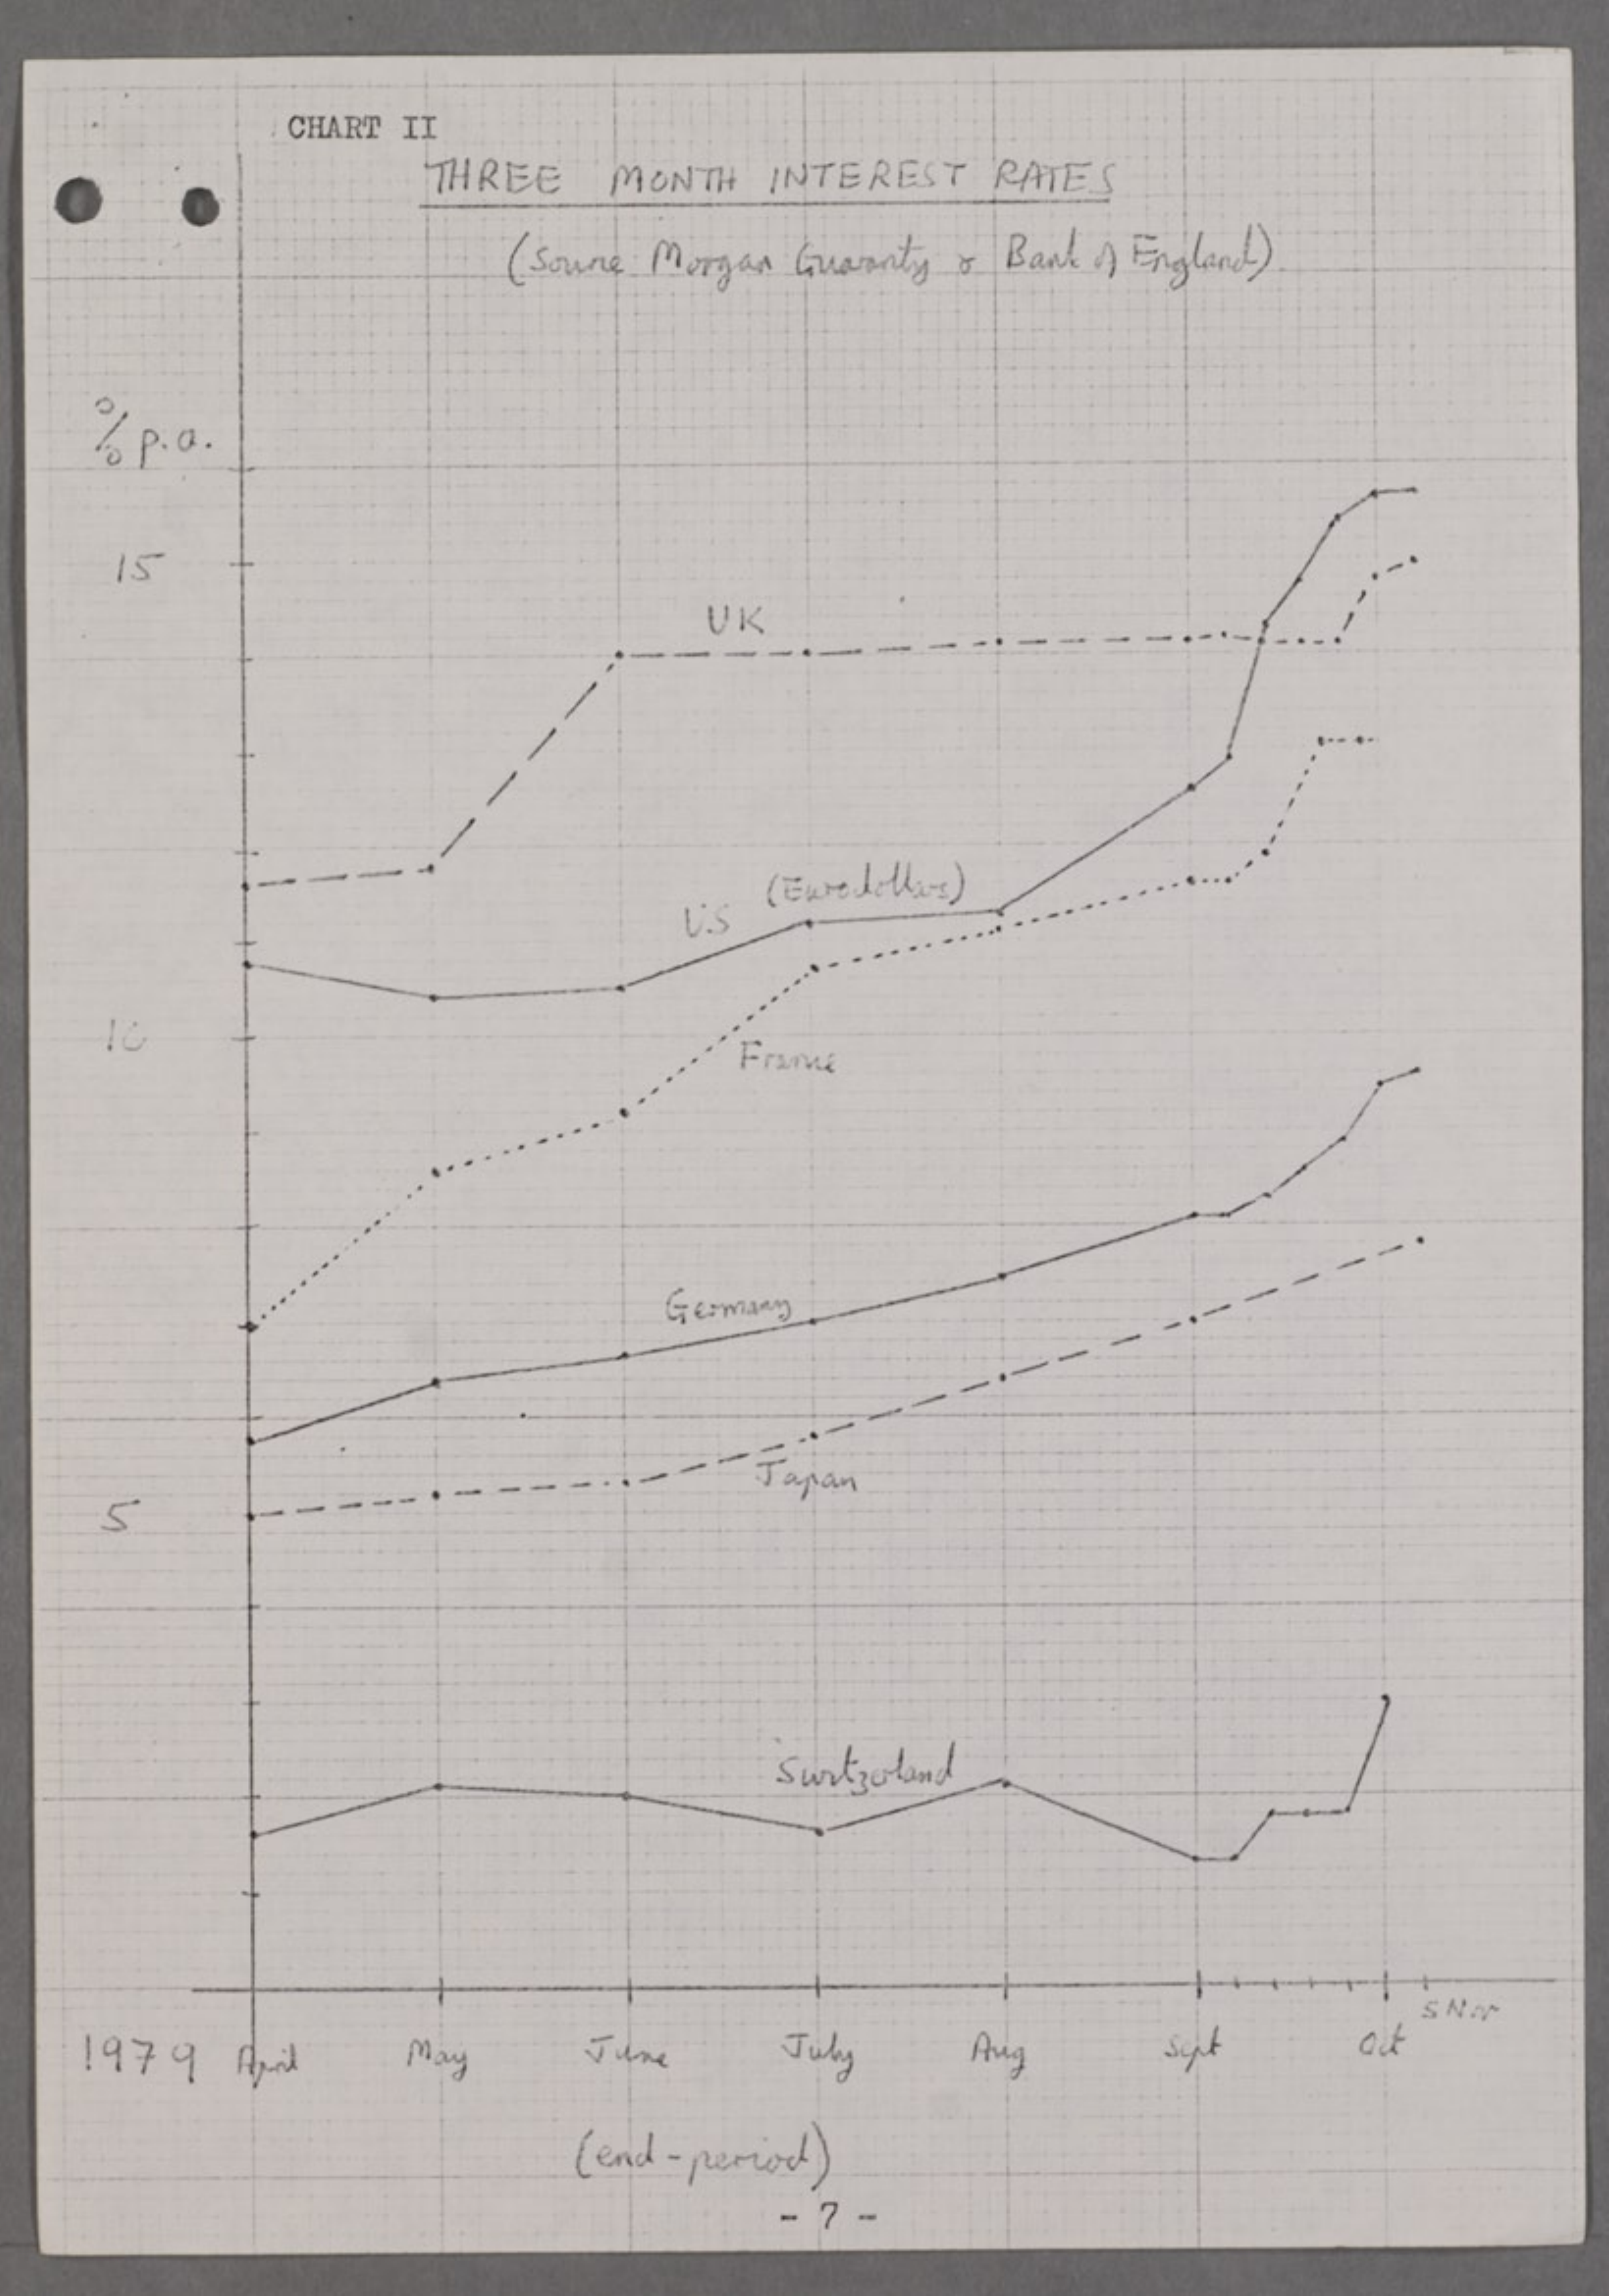 CHART II
THREE MONTH INTEREST RATES
(Source Morgan Guaranty & Bank of England)
% p.a.
15
UK
(Eurodollars)
U.S
10
France
Germany
Japan
5
Switzerland
5 Nov
1979 April May June July Aug Sept Oct
(end-period)
- 7 -